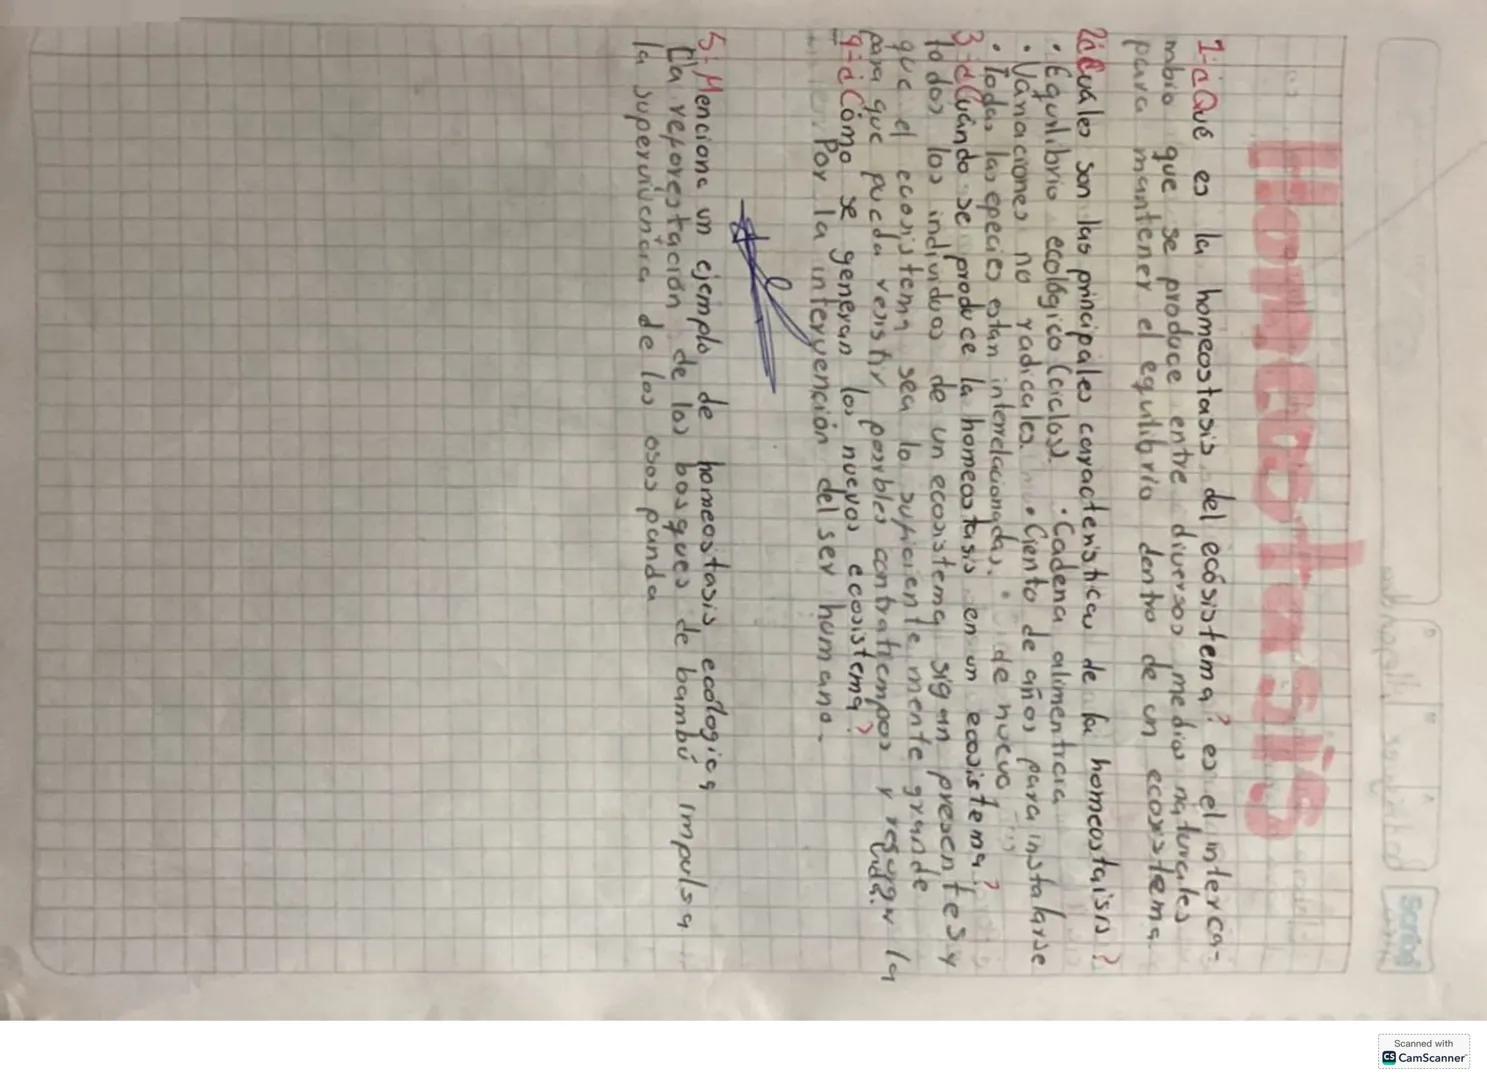 Homeostasis
1-¿Qué es la homeostasis del ecósistema? es el interca-
mbio que se produce entre diversos medios naturales
para mantener el equilibrio dentro de un ecosistema
2¿Cuáles son las principales caracteristicas de la homeostaisis?
• Equilibrio ecológico (ciclos). • Cadena alimenticia
• Variaciones no radicales. • Ciento de años para instalarse
• Todas las epecies estan interrelacionadas. de nuevo
3-¿Cuándo se produce la homeostasis en un ecosistema?
todos los individuos de un ecosistema sigan presentes y
que el ecosistema sea lo suficiente mente grande
para que pueda resistir posibles contratiempos y resurgir la
vida.
4-¿Cómo se generan los nuevos ecosistema?
Por la intervención del ser humano.
5- Menciona un ejemplo de homeostasis ecologica
La reforestación de los bosques de bambú impulsa
la supervivencia de los osos panda
Scribe
Scanned with
CS CamScanner